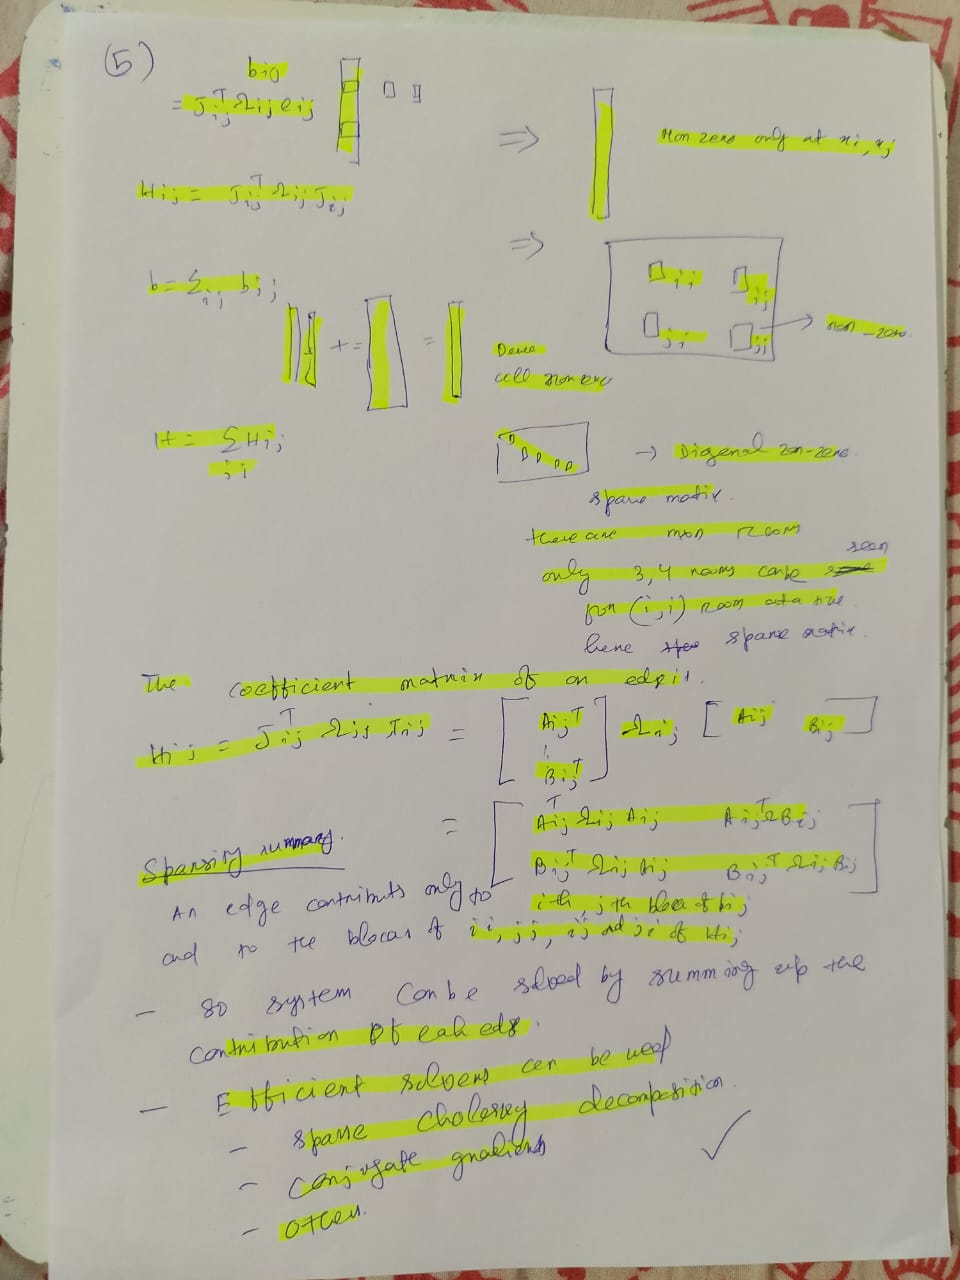 (5)
bij
= Jij^T Ωij eij
⇒ Non zero only at xi, xj
Hij = Jij^T Ωij Jij
⇒
b = Σij bij
ii ij
ji jj → non-zero
+ = =
Dense
all non zero
H = Σ Hij
ij
→ Digenal zon-zero
sparse matix.
there are mon rooms
only 3,4 rooms canbe seen
for (i,j) room at a time
hene sparse matix.
The coefficient matrix of an edgij.
Hij = Jij^T Ωij Jij = [ Aij^T : Bij^T ] Ωij [ Aij Bij ]
= [ Aij^T Ωij Aij Aij^T Ω Bij
Bij^T Ωij Aij Bij^T Ωij Bij ]
Sparsity summary.
An edge contributs only to ith, jth block of bij
and to the blocks of ii, jj, ij ad ji of Hij
- so system canbe solved by summing up the
contribution of eah edge.
- Efficient solvers can be used
- sparse cholesky decomposition.
- conjugate gradients
- other.